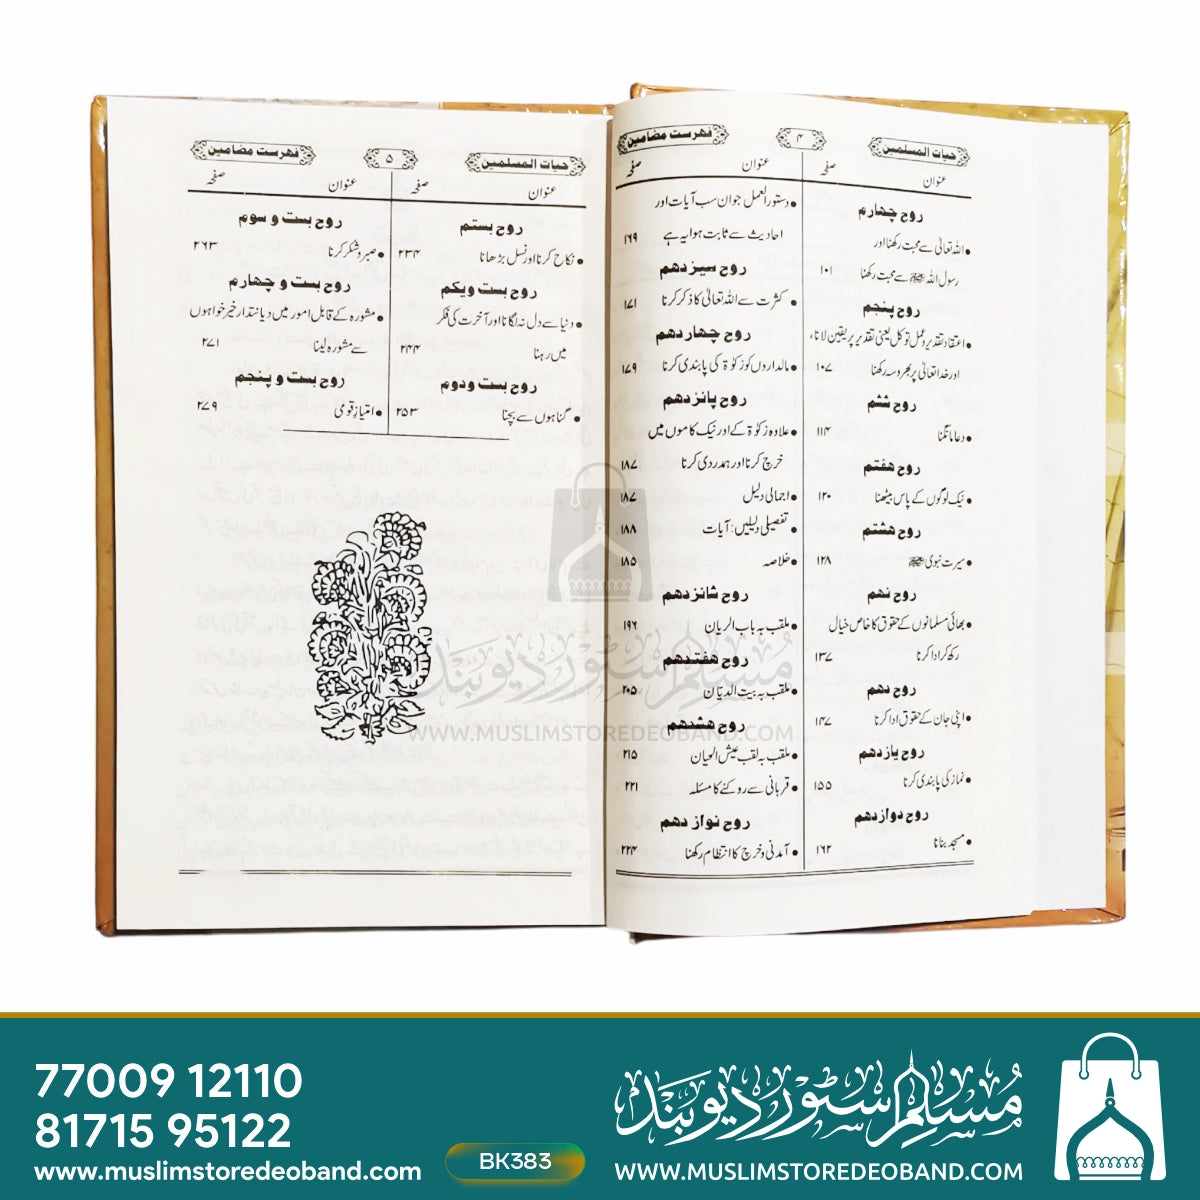 حیات المسلمین
۴
فہرست مضامین
عنوان
صفحہ
روح چہارم
• اللہ تعالیٰ سے محبت رکھنا اور
رسول اللہ ﷺ سے محبت رکھنا ۱۰۱
روح پنجم
• اعتقاد تقدیر و عمل توکل یعنی تقدیر پر یقین لانا،
اور خدا تعالیٰ پر بھروسہ رکھنا ۱۰۷
روح ششم
• دعا مانگنا ۱۱۴
روح ہفتم
• نیک لوگوں کے پاس بیٹھنا ۱۲۰
روح ہشتم
• سیرت نبوی ﷺ ۱۲۸
روح نہم
• بھائی مسلمانوں کے حقوق کا خاص خیال
رکھ کر ادا کرنا ۱۳۷
روح دہم
• اپنی جان کے حقوق ادا کرنا ۱۴۷
روح یازدہم
• نماز کی پابندی کرنا ۱۵۵
روح دوازدہم
• مسجد بنانا ۱۶۲
عنوان
صفحہ
• دستور العمل جو ان سب آیات اور
احادیث سے ثابت ہوا یہ ہے ۱۶۹
روح سیزدہم
• کثرت سے اللہ تعالیٰ کا ذکر کرنا ۱۷۱
روح چہاردہم
• مالداروں کو زکوٰۃ کی پابندی کرنا ۱۷۹
روح پانزدہم
• علاوہ زکوٰۃ کے اور نیک کاموں میں
خرچ کرنا اور ہمدردی کرنا ۱۸۷
• اجمالی دلیل ۱۸۷
• تفصیلی دلیلیں: آیات ۱۸۸
• خلاصہ ۱۸۵
روح شانزدہم
• ملقب بہ باب الریان ۱۹۶
روح ہفتدہم
• ملقب بہ بیت الدیان ۲۰۵
روح ہشدہم
• ملقب بہ لقب عیش الحیان ۲۱۵
• قربانی سے روکنے کا مسئلہ ۲۲۱
روح نوازدہم
• آمدنی و خرچ کا انتظام رکھنا ۲۲۴
حیات المسلمین
۵
فہرست مضامین
عنوان
صفحہ
روح بستم
• نکاح کرنا اور نسل بڑھانا ۲۳۴
روح بست ویکم
• دنیا سے دل نہ لگانا اور آخرت کی فکر
میں رہنا ۲۴۴
روح بست ودوم
• گناہوں سے بچنا ۲۵۳
عنوان
صفحہ
روح بست و سوم
• صبر و شکر کرنا ۲۶۳
روح بست و چہارم
• مشورہ کے قابل امور میں دیانتدار خیر خواہوں
سے مشورہ لینا ۲۷۱
روح بست و پنجم
• امتیاز قومی ۲۷۹
مسلم سٹور دیوبند
WWW.MUSLIMSTOREDEOBAND.COM
77009 12110
81715 95122
www.muslimstoredeoband.com
BK383
مسلم سٹور دیوبند
WWW.MUSLIMSTOREDEOBAND.COM